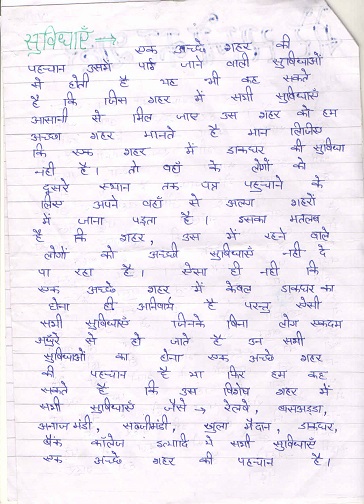 सुविधाएँ →
एक अच्छे शहर की
पहचान उसमें पाई जाने वाली सुविधाओं
से होती है यह भी कह सकते
है कि जिस शहर में सभी सुविधाएँ
आसानी से मिल जाए उस शहर को हम
अच्छा शहर मानते है मान लिजिए
कि एक शहर में डाकघर की सुविधा
नही है। तो वहाँ के लोगों को
दूसरे स्थान तक पत्र पहुचाने के
लिए अपने वहाँ से अलग शहरों
में जाना पड़ता है। इसका मतलब
है कि शहर, उस में रहने वाले
लोगों को अच्छी सुविधाएँ नही दे
पा रहा है। ऐसा ही नही कि
एक अच्छे शहर में केवल डाकघर का
होना ही अनिवार्य है परन्तु ऐसी
सभी सुविधाएँ जिनके बिना लोग एकदम
अधुरे से हो जाते है उन सभी
सुविधाओं का होना एक अच्छे शहर
की पहचान है या फिर हम कह
सकते है कि उस विशेष शहर में
सभी सुविधाएँ जैसे → रेलवे, बसअड्डा,
अनाज मंडी, सब्जीमंडी, खुला मैदान, डाकघर,
बैंक कॉलेज इत्यादि ये सभी सुविधाएँ
एक अच्छे शहर की पहचान है।